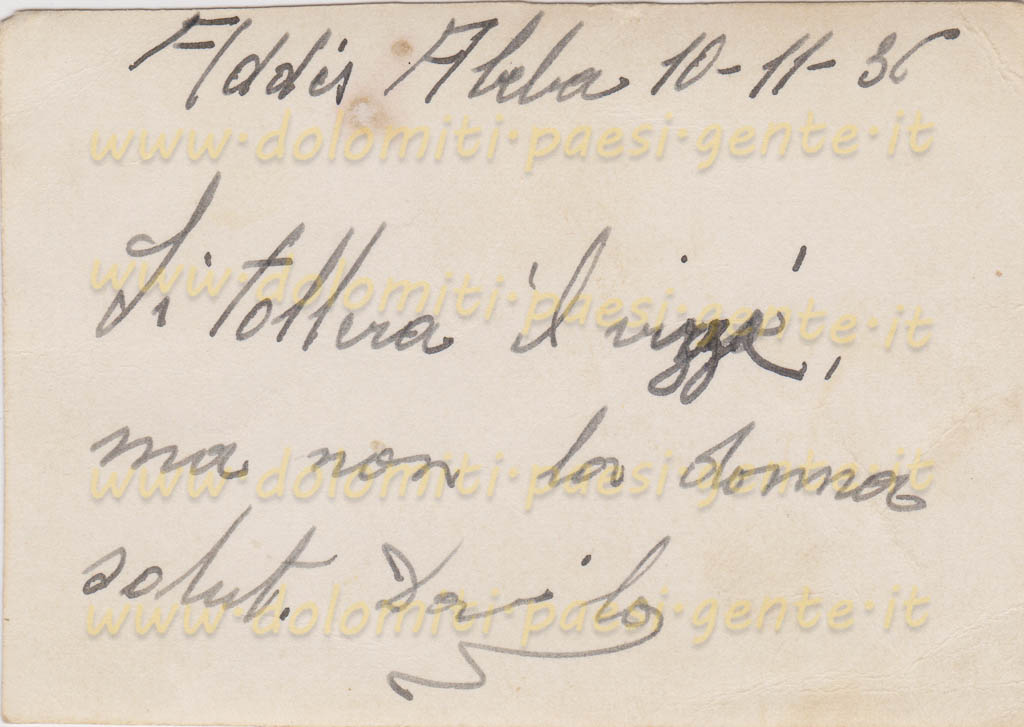 Addis Abeba 10-11-36
www·dolomiti·paesi·gente·it
Si tollera il
www·dolomiti·paesi·gente·it
ma non la donna
www·dolomiti·paesi·gente·it
salut. Danilo
www·dolomiti·paesi·gente·it